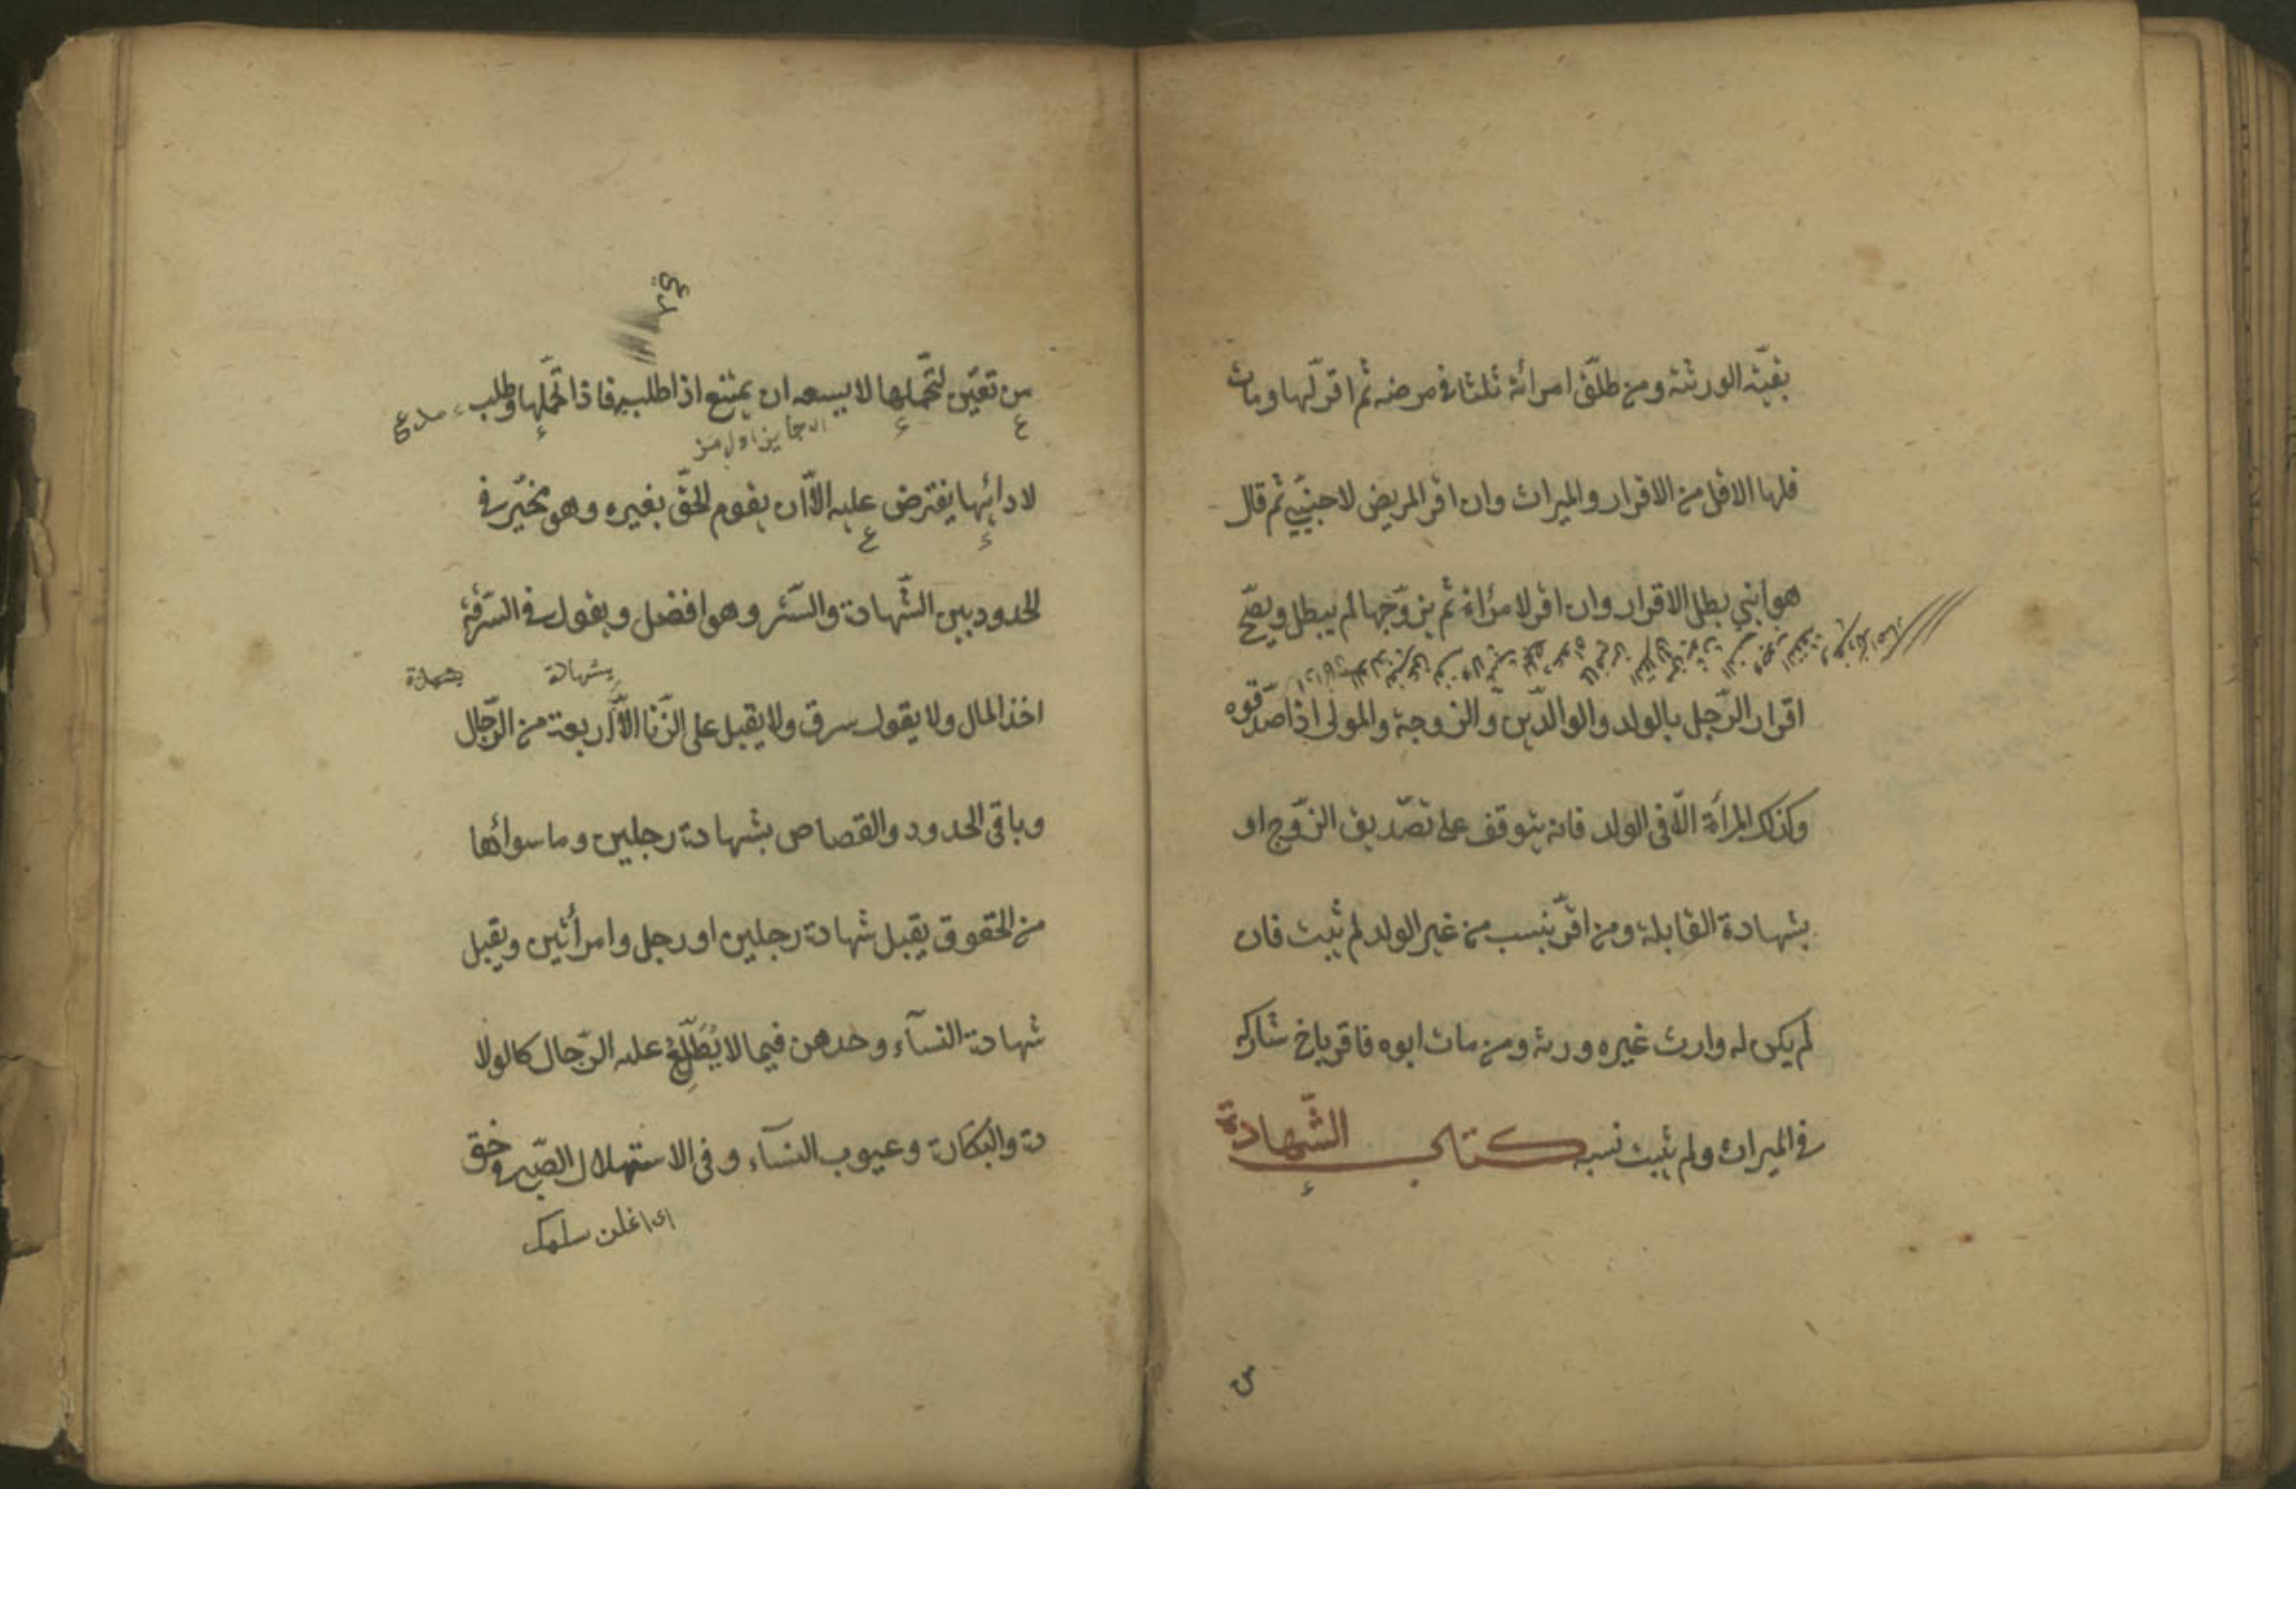 بقيّة الورثة ومن طلّق امرأته ثلثا في مرضه ثم اقرّ لها ومات
فلها الاقل من الاقرار والميراث وان اقر المريض لاجنبيّ ثم قال
هو ابني بطل الاقرار وان اقر لامرأة ثم تزوّجها لم يبطل ويصحّ
اقرار الرّجل بالولد والوالدين والزوجة والمولى اذا صدّقوه
وكذلك المرأة الّا في الولد فانه يتوقف على تصديق الزّوج او
بشهادة القابلة ومن اقرّ بنسب من غير الولد لم يثبت فان
لم يكن له وارث غيره ورثه ومن مات ابوه فاقر باخ شاركه
في الميراث ولم يثبت نسبه كتاب الشّهادة
من تعيّن لتحمّلها لا يسعه ان يمتنع اذا طلب فاذا تحمّلها وطلب
لادائها يفترض عليه الّا ان يقوم الحقّ بغيره وهو مخيّر في
الحدود بين الشّهادة والسّتر وهو افضل ويقول في السّرقة
بشهادة
شهادة
اخذ المال ولا يقول سرق ولا يقبل على الزّنا الّا اربعة من الرّجال
وباقي الحدود والقصاص بشهادة رجلين وما سوائها
من الحقوق يقبل شهادة رجلين او رجل وامرأتين ويقبل
شهادة النسآء وحدهن فيما لا يُطَّلِعُ عليه الرّجال كالولا
دة والبكارة وعيوب النسآء وفي الاستهلال الصّبي في حق